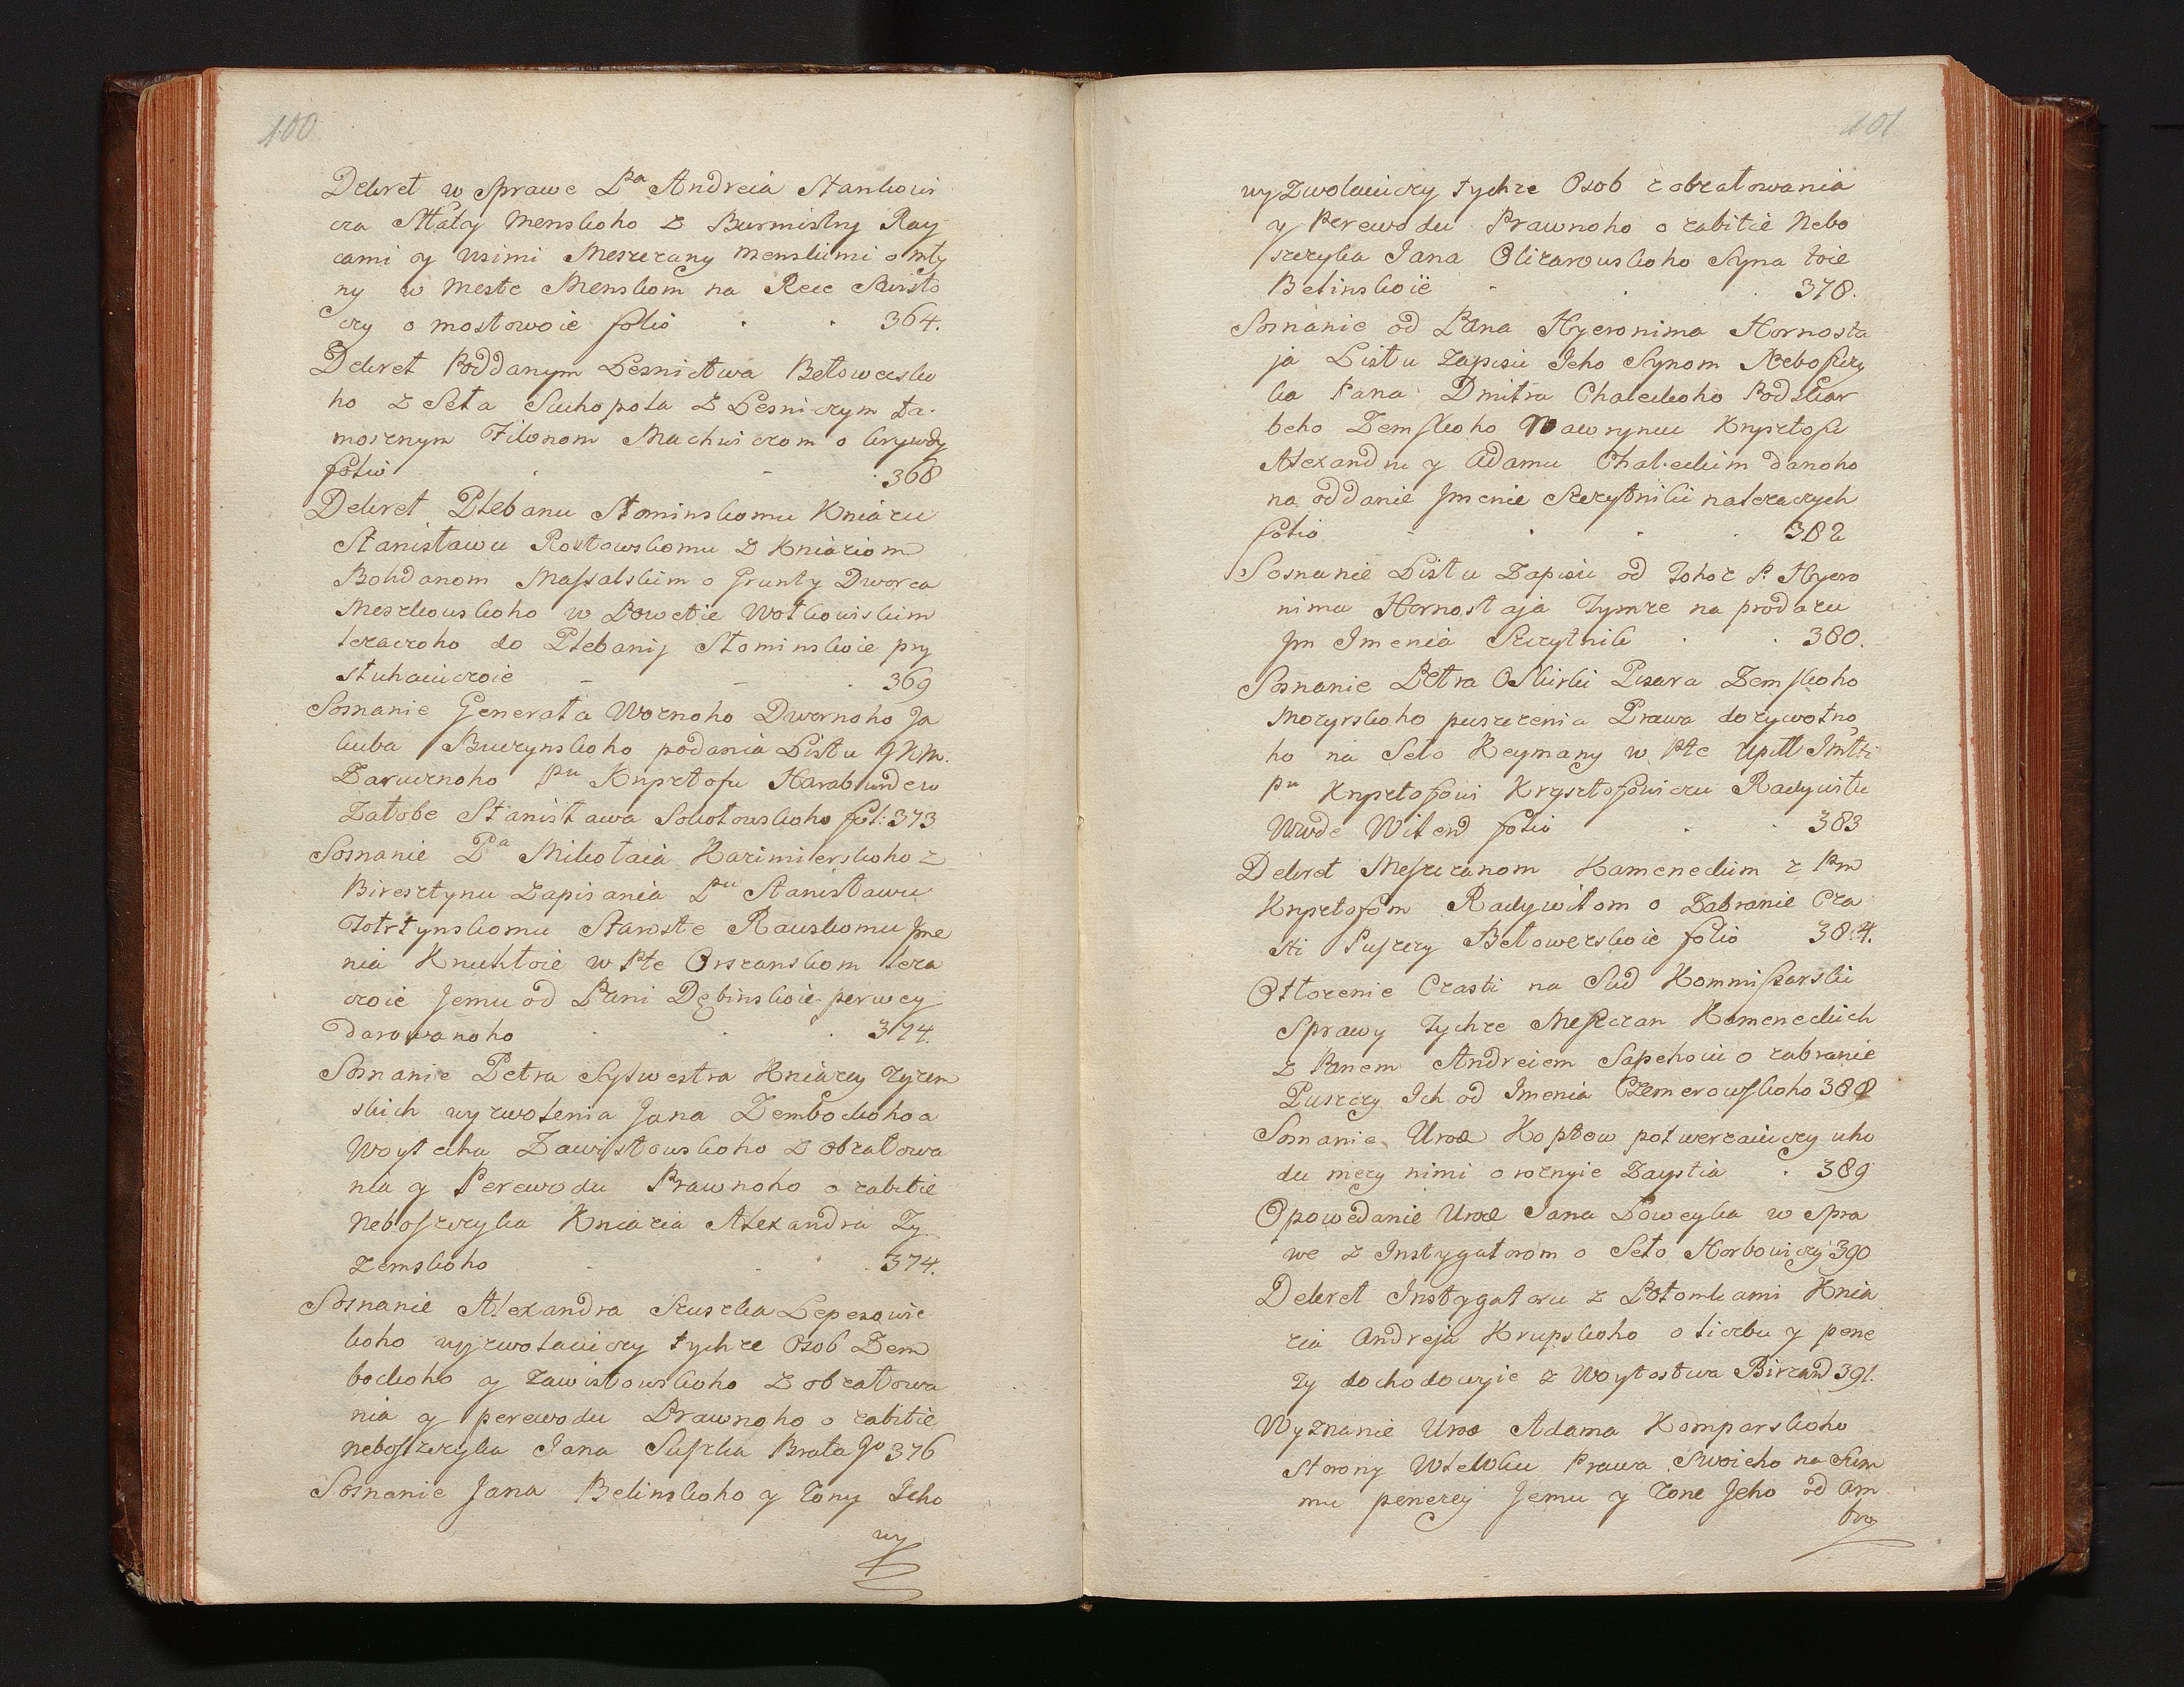 100
Dekret w Sprawe Pa Andreia Stankowi
cza Stały Menskoho z Burmistry Ray
cami y Usimi Meszczany Menskimi o mły
ny w Meste Menskom na Rece Swisło
czy o mostowoie folio 364.
Dekret Poddanym Lesnictwa Bełowezsko
ho z Seła Suchopola z Lesniczym ta-
mosznym Filonom Machwiczom o krywdy
folio 368
Dekret Plebanu Słominskomu Kniazu
Stanisławu Rostowskomu z Kniaziom
Bohdanom Massalskim o Grunty Dworca
Meszkowskoho w Powetie Wołkowiskim
lezaczoho do Plebanij Słominskoie pry
słuhaiuczoie 369
Soznanie Generała Woznoho Dwornoho Ja
kuba Buczynskoho podania Listu JKM.
Zarucznoho Pu Krysztofu Haraburdew
Zatobe Stanisława Sokołowskoho fol: 373
Soznanie Pa Mikołaia Kazimierskoho z
Biresztynu Zapisania Pu Stanisławu
Zołtynskomu Staroste Rauskomu Jme
nia Knuhtoie w Pte Orszanskom leza
czoie Jemu od Pani Dębinskoie perwey
darowanoho 374.
Soznanie Petra Sylwestra Kniazey Zyzem
skich wyzwolenia Jana Zembockoho a
Woytecha Zawistowskoho z obzałowa
nia y Perewodu Prawnoho o zabitie
Neboszczyka Kniazia Alexandra Zy
zemskoho 374.
Soznanie Alexandra Szuszka Lepesowic
koho wyzwolaiuczy tychze Osob Zem
bockoho y Zawistowskoho z obzałowa
nia y perewodu Prawnoho o zabitie
neboszczyka Jana Suszka Brata Jo 376
Soznanie Jana Belinskoho y Zony Jeho
wy
101
wyZwolaiuczy tychze Osob z obzałowania
y Perewodu Prawnoho o zabitie Nebo
szczyka Jana Olizarowskoho Syna toie
Belinskoie 378.
Soznanie od Pana Hyeronima Hornosta
ja Listu Zapisu Jeho Synom Neboszczy
ka Pana Dmitra Chaleckoho Podskar
beho Zemskoho Wawrynu Krysztofu
Alexandru y Adamu Chaleckim danoho
na oddanie Jmenie Szczytniki należaczych
folio 382
Soznanie Listu Zapisu od Tohoż P. Hyero
nima Hornostaja Tymze na prodazu
Jm Imenia Szczytnik 380.
Soznanie Petra OSkirki Pisara Zemskoho
Mozyrskoho puszczenia Prawa dozywotno
ho na Seło Reymany w Pte Upitt Jmłti
Pu Krysztofowi Krysztofowiczu Radywiłu
Wwde Wilend folio 383
Dekret Meszczanom Kameneckim z Pm
Krysztofom Radywiłom o Zabranie Cza
sti Puszczy Bełowezskoie folio 384.
Otłozenie Czasti na Sud Kommissarski
Sprawy Tychze Meszczan Kameneckich
z Panem Andreiem Sapehoiu o zabranie
Puszczy Ich od Imenia Czemerowskoho 388
Soznanie Uroz Koptow potwerzaiuczy uho
du mezy nimi o roznyie Zaystia 389
Opowedanie Uroz Jana Poweyka w Spra
we z Instygatorom o Seło Horbowiczy 390
Dekret Instygatoru z Potomkami Knia
zia Andreja Krupskoho o liczbu y pene
zy dochodowyie z Woytostwa Birzand 391.
Wyznanie Uroz Adama Komparskoho
Storony Wlewku Prawa Swoieho na Sum
mu penezey Jemu y Zone Jeho od Am
bro